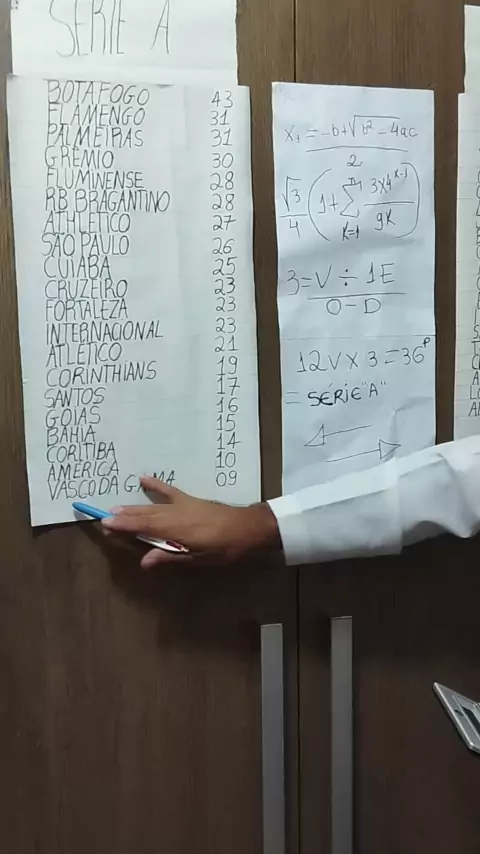 SÉRIE A
BOTAFOGO 43
FLAMENGO 31
PALMEIRAS 31
GRÊMIO 30
FLUMINENSE 28
RB BRAGANTINO 28
ATHLETICO 27
SÃO PAULO 26
CUIABÁ 25
CRUZEIRO 23
FORTALEZA 23
INTERNACIONAL 23
ATLÉTICO 21
CORINTHIANS 19
SANTOS 17
GOIÁS 16
BAHIA 15
CORITIBA 14
AMÉRICA 10
VASCO DA GAMA 09
X₁ = -b+√b²-4ac
2
√3/4 (1+ ∑ K=1 3x4ᴷ⁻¹/9K)
3 = V ÷ 1E
O - D
12V X 3 = 36P
= SÉRIE "A"